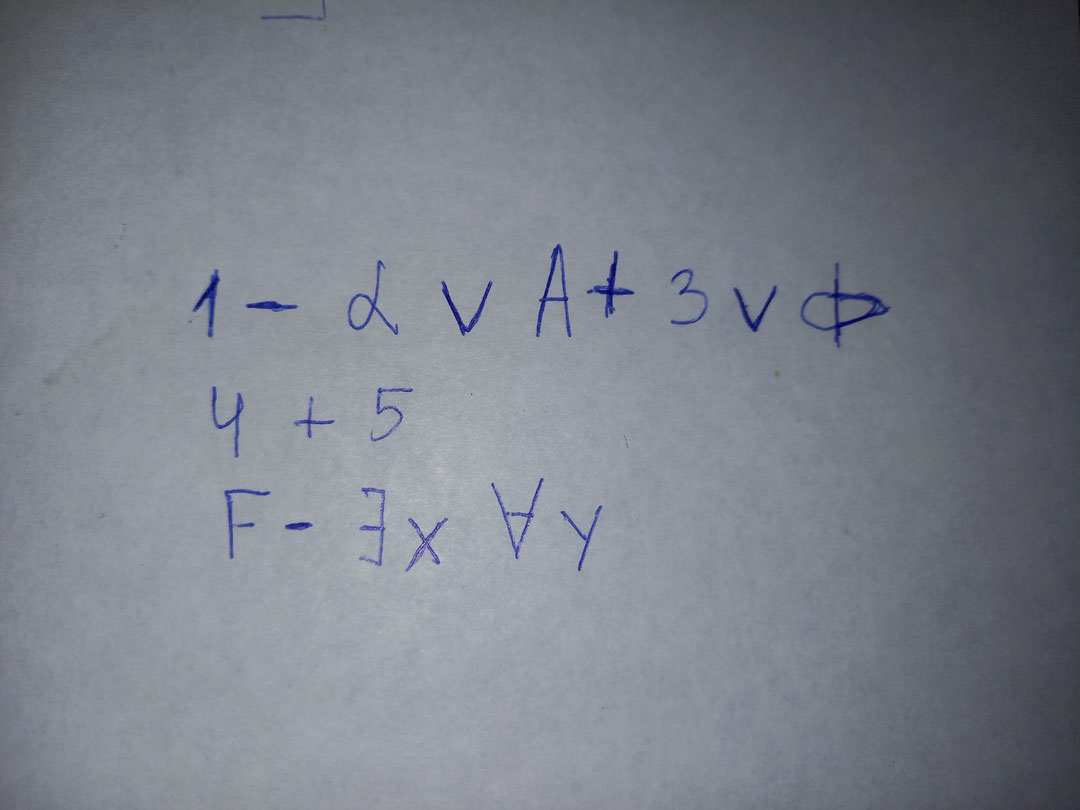 1 - α ∨ A + 3 ∨ Ф
4 + 5
F - ∃x ∀y